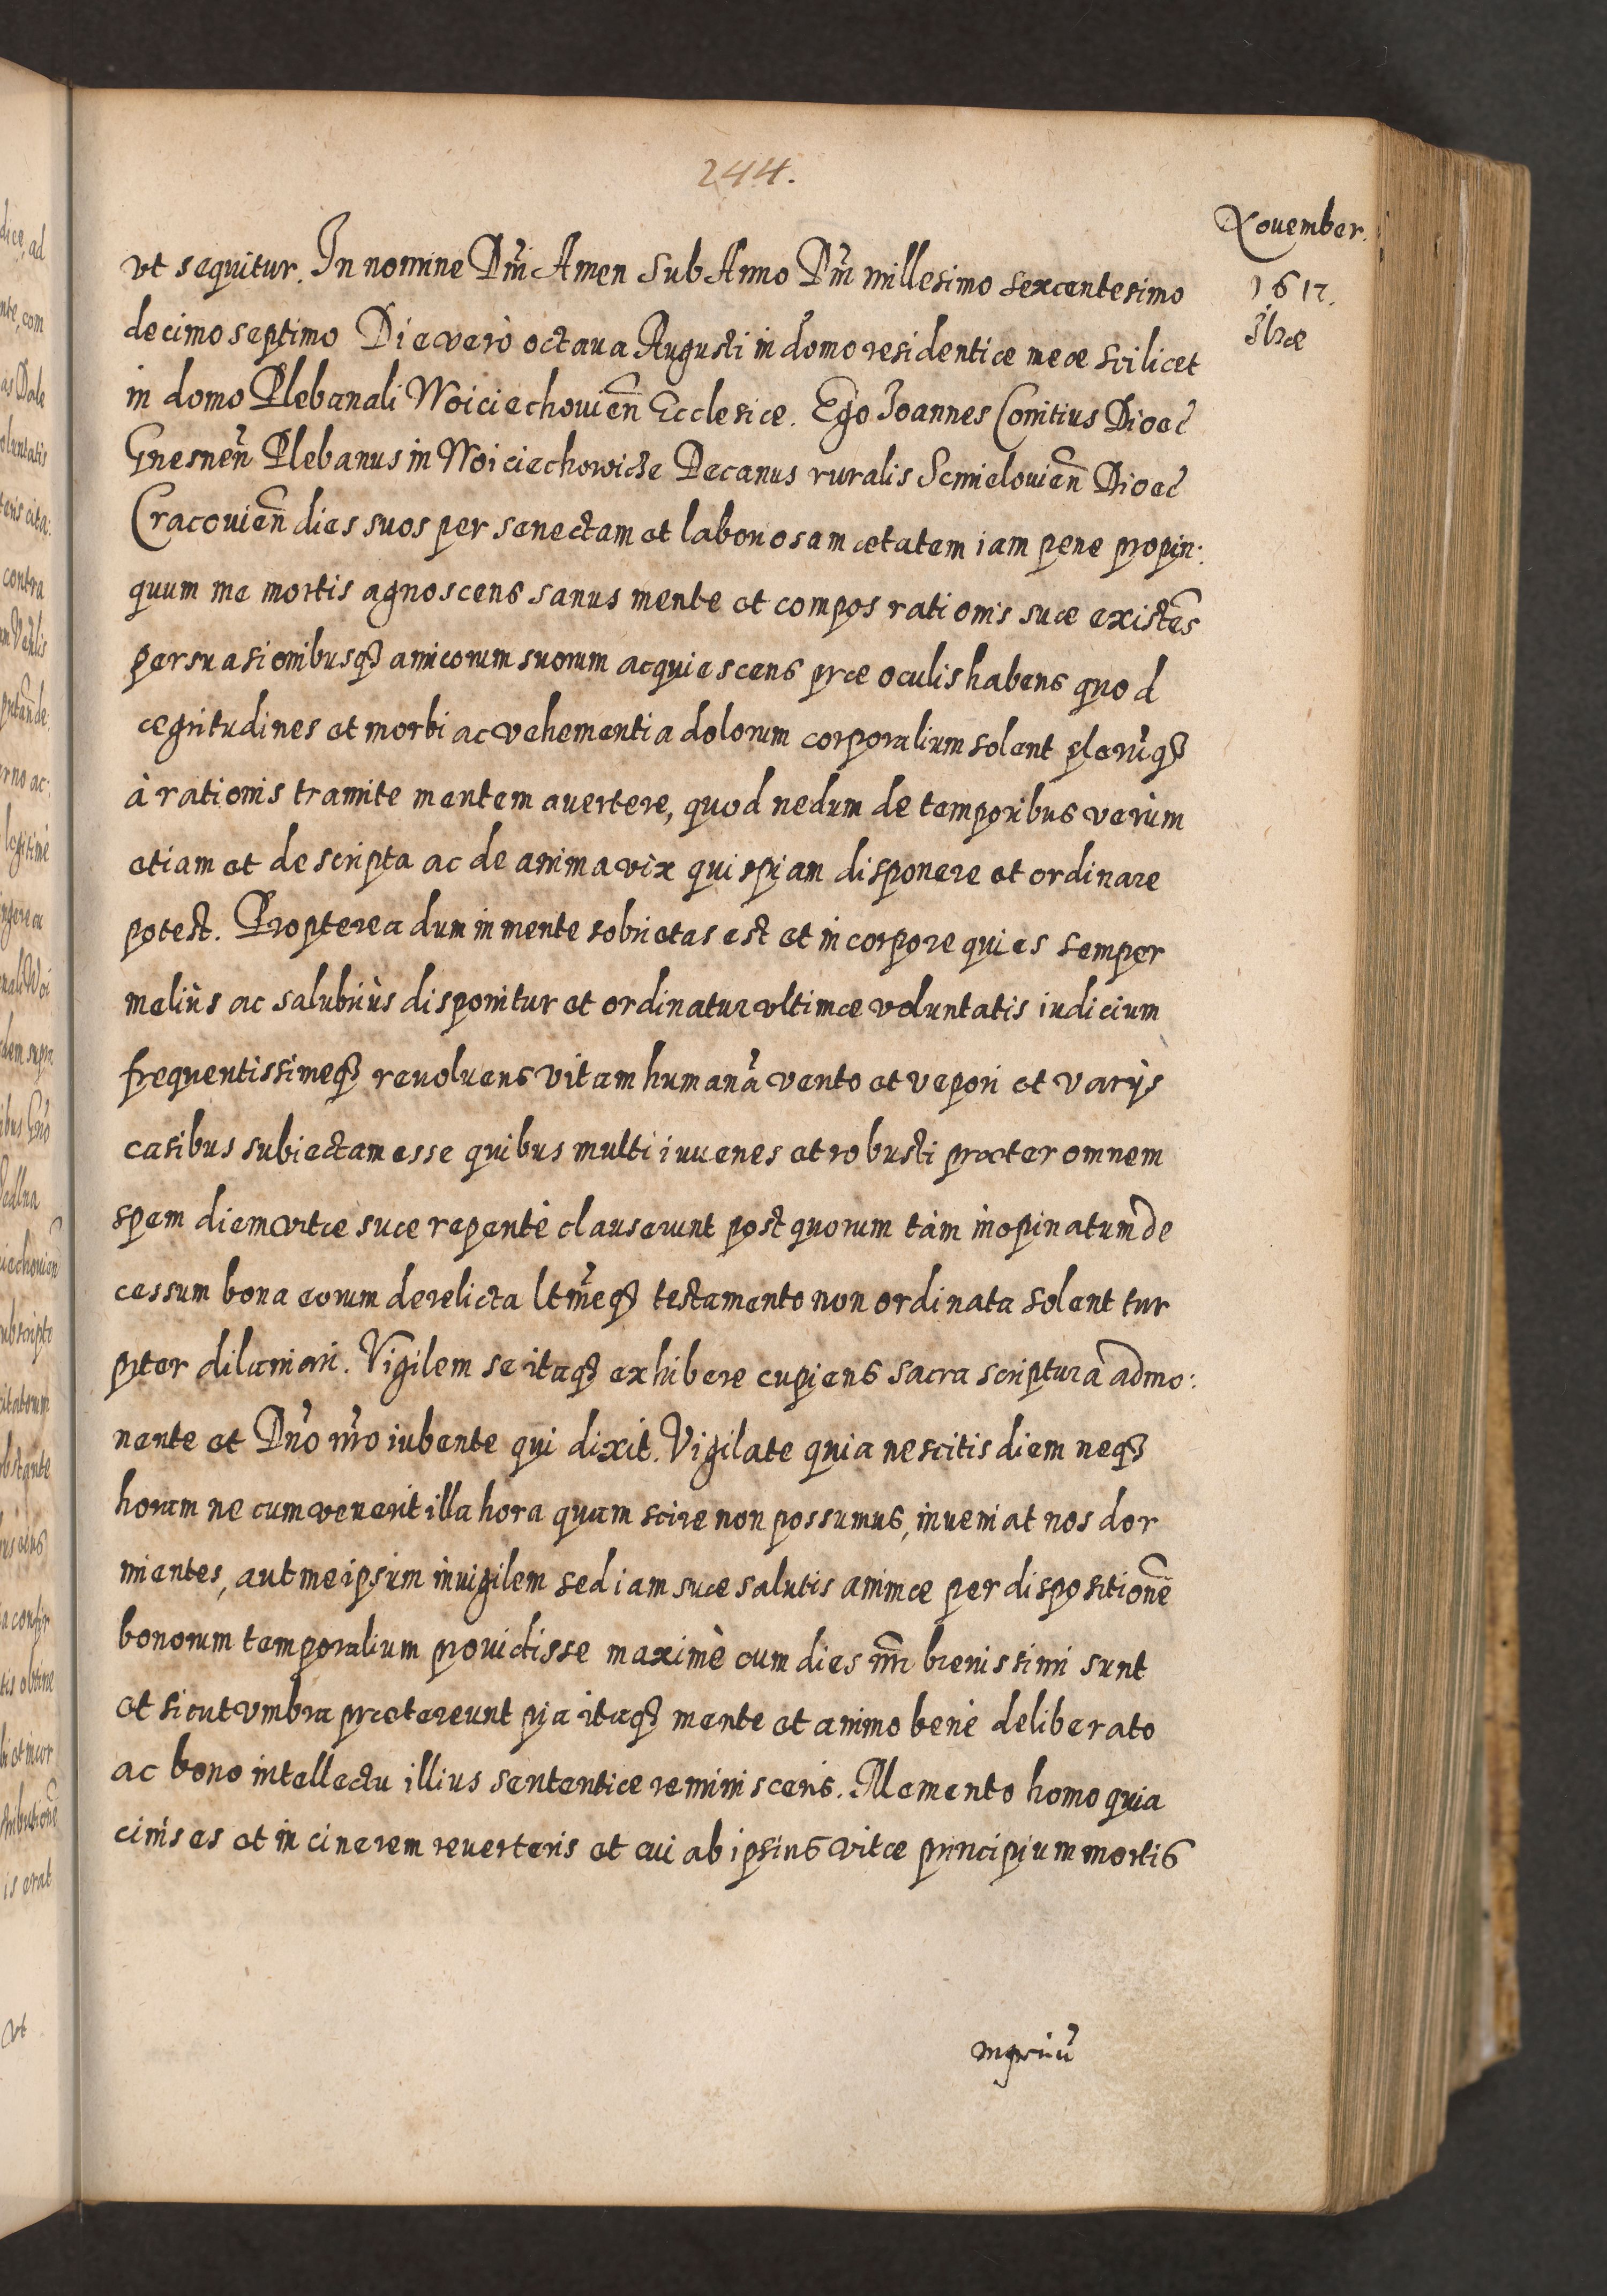 244.
Nouember.
1617.
Ilzæ
vt sequitur. In nomine Dm̃ Amen Sub Anno Dm̃ millesimo sexcentesimo
decimo septimo Die verò octaua Augusti in domo residentiæ meæ scilicet
in domo Plebanali Woiciechouień Ecclesiæ. Ego Joannes Comitius Dioec̃
Gnesneñ Plebanus in Woiciechowicze Decanus ruralis Scmielouień Dioec̃
Cracouień dies suos per senectam et laboriosam ætatem iam pene propin:
quum me mortis agnoscens sanus mente et compos rationis suæ existẽs
persuasionibusq; amicorum suorum acquiescens præ oculis habens quod
ægritudines et morbi ac vehementia dolorum corporalium solent plerũq;
à rationis tramite mentem auertere, quod nedum de temporibus verùm
etiam et de scripta ac de anima vix quispiam disponere et ordinare
potest. Propterea dum in mente sobrietas est et in corpore quies semper
meliùs ac salubriùs disponitur et ordinatur vltimæ voluntatis iudicium
frequentissimeq; reuoluens vitam humanã vento et vepori et varijs
casibus subiectam esse quibus multi iuuenes et robusti præter omnem
spem diem vitæ suæ repentè clauserunt post quorum tàm inopinatum de
cessum bona eorum derelicta ltm̃eq; testamento non ordinata solent tur
piter dilaniari. Vigilem se itaq; exhibere cupiens sacra scriptura admo:
nente et Dno nr̃o iubente qui dixit. Vigilate quia nescitis diem neq;
horam ne cum venerit illa hora quam scire non possumus, inueniat nos dor
mientes, aut meipsum inuigilem sed iam suæ salutis animæ per dispositionẽ
bonorum temporalium prouidisse maximè cum dies nr̃i breuissimi sunt
et sicut vmbra prætereunt pia itaq; mente et animo benè deliberato
ac bono intellectu illius sententiæ reminiscens. Memento homo quia
cinis es et in cinerem reuerteris et cui ab ipsius vitæ principium mortis